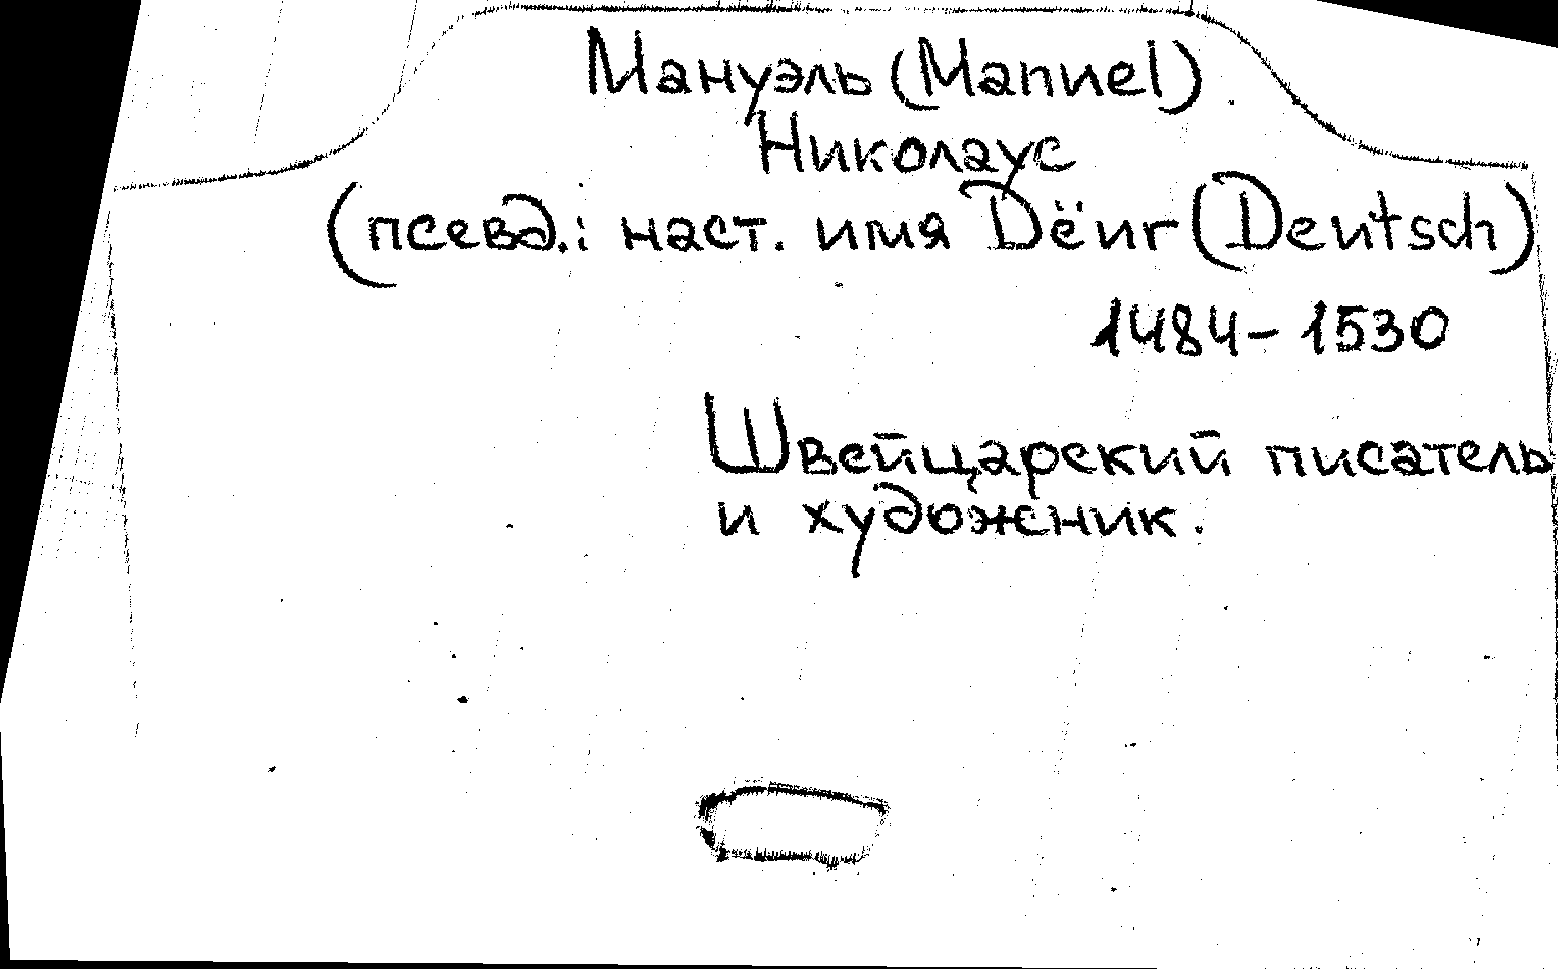 Мануэль (Manuel)
Николаус
(псевд.: наст. имя Дёиг (Deutsch)
1484 – 1530
Швейцарский писатель
и художник.